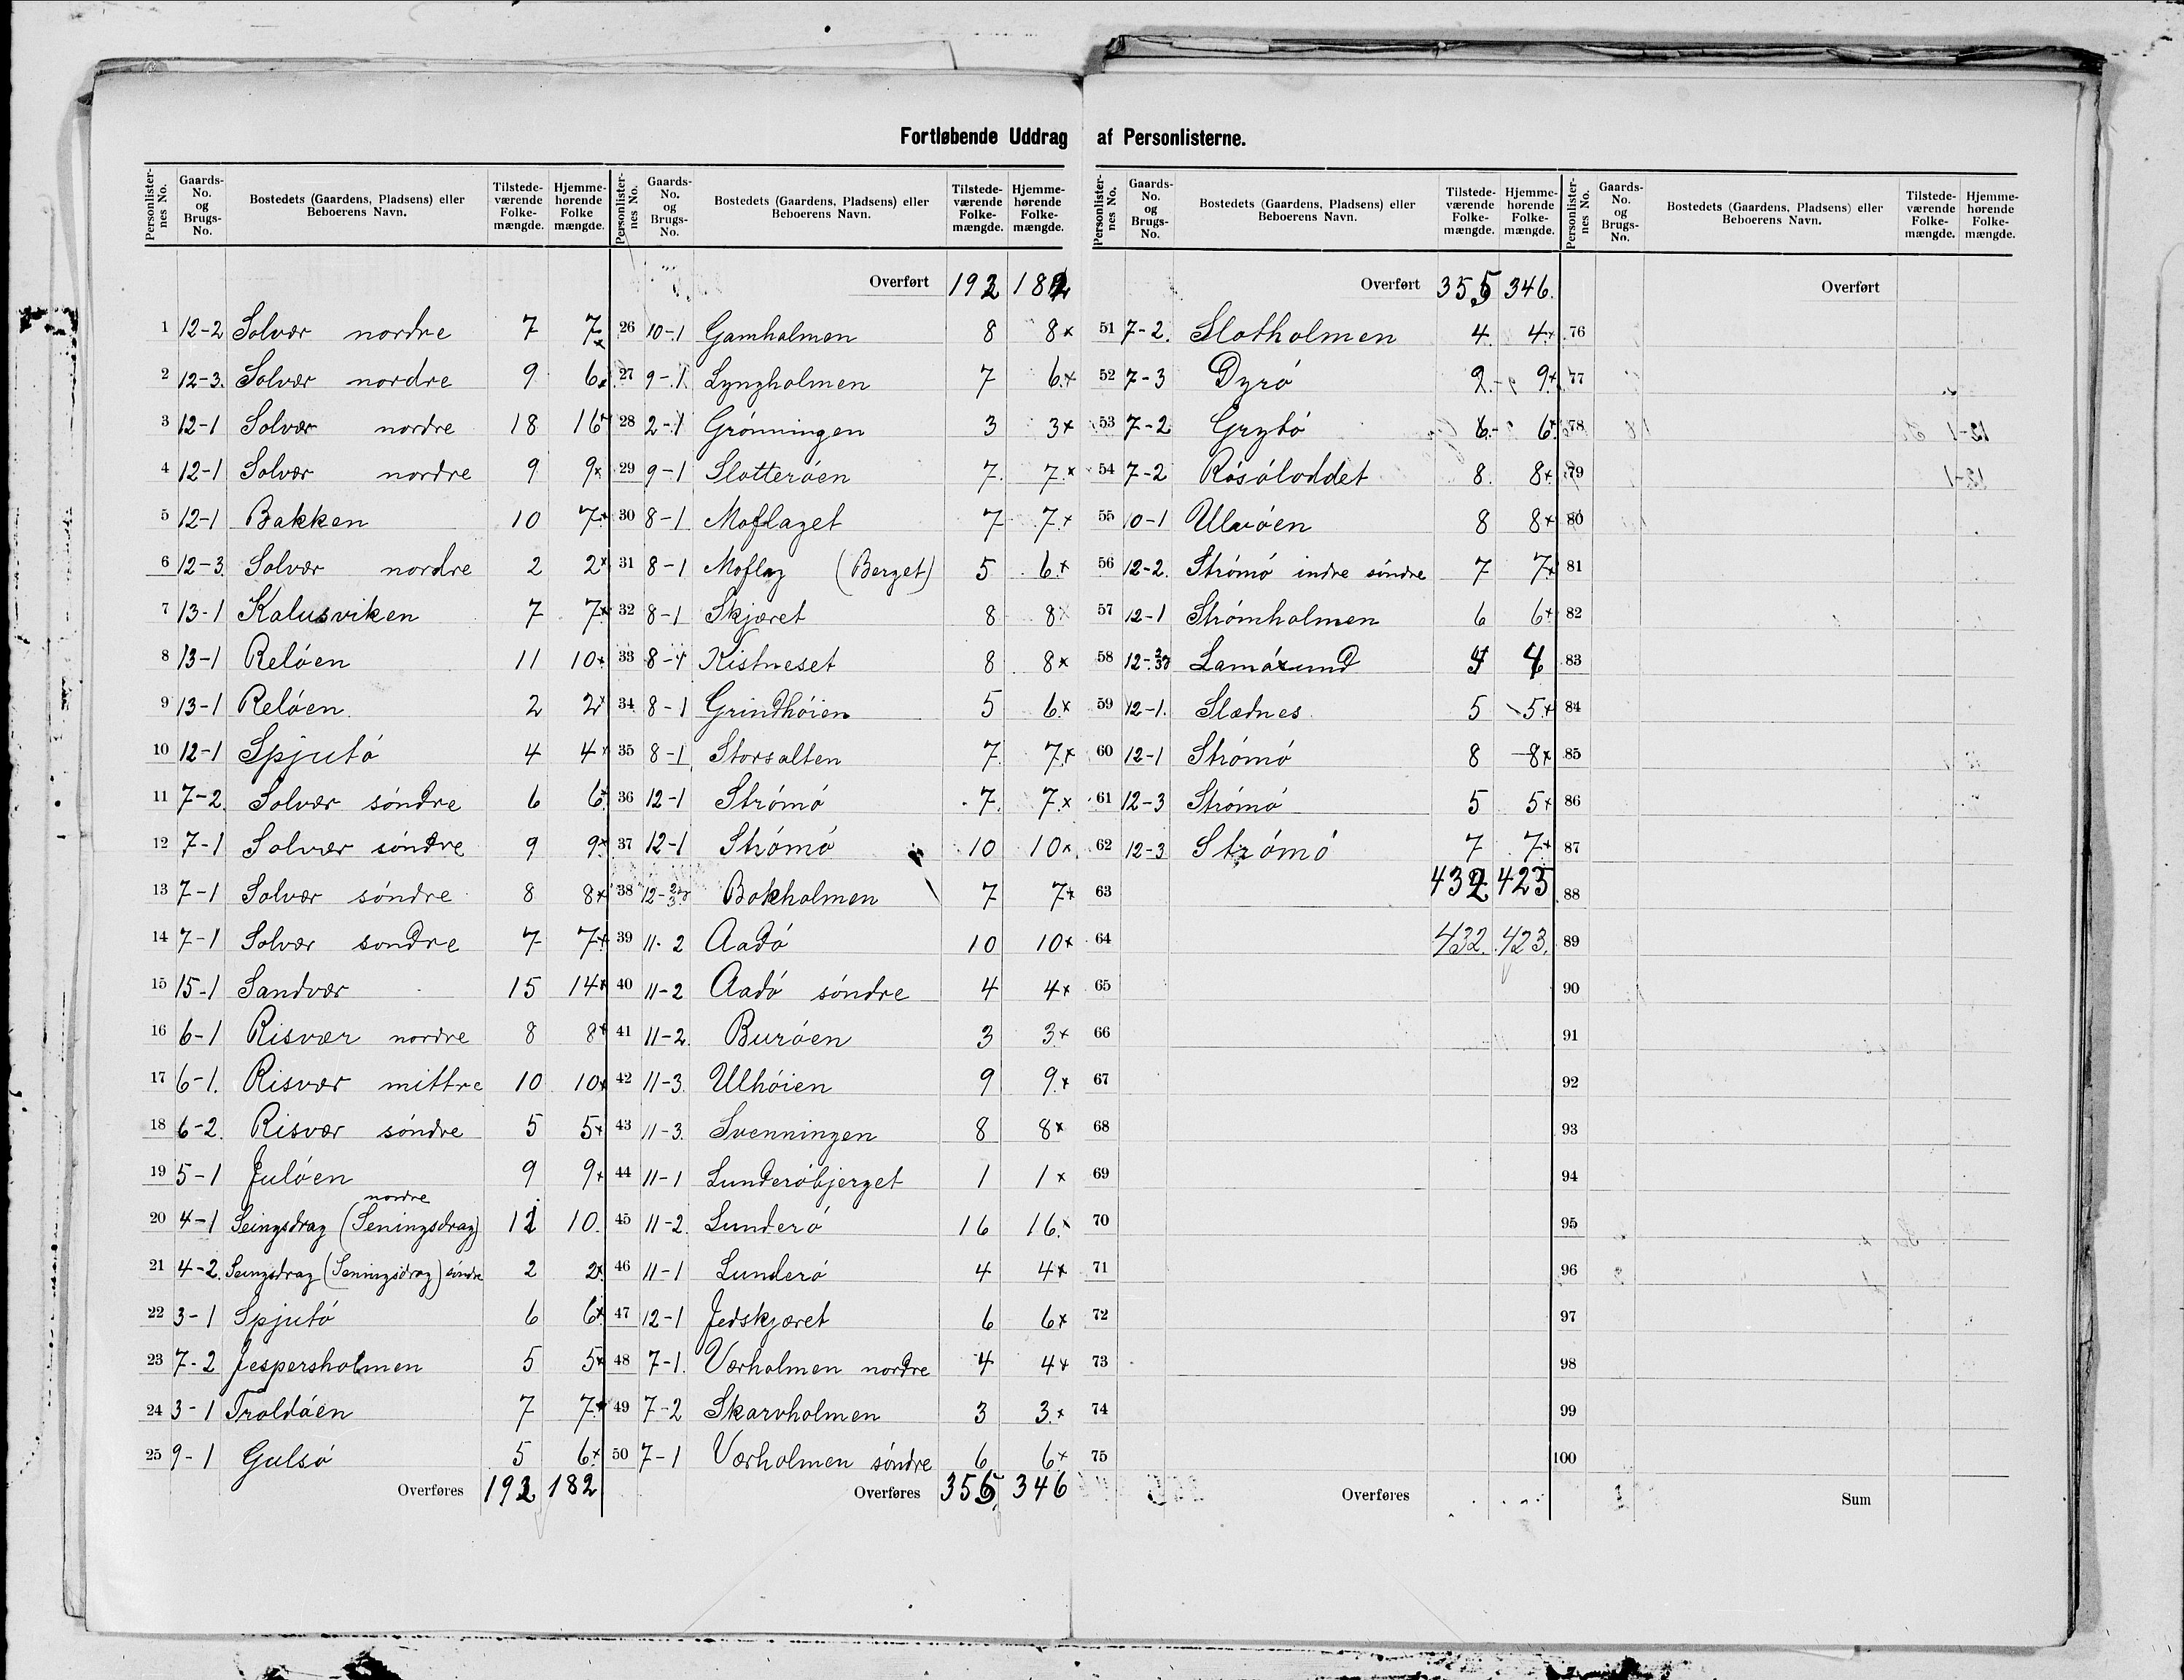 Fortløbende Uddrag af Personlisterne.
Personlister-nes No. | Gaards-No. og Brugs-No. | Bostedets (Gaardens, Pladsens) eller Beboerens Navn. | Tilstede-værende Folke-mængde. | Hjemme-hørende Folke mængde.
1 12-2 Solvær nordre 7 7x
2 12-3. Solvær nordre 9 6x
3 12-1 Solvær nordre 18 16x
4 12-1 Solvær nordre 9 9x
5 12-1 Bakken 10 7x
6 12-3. Solvær nordre 2 2x
7 13-1 Kalusviken 7 7x
8 13-1 Reløen 11 10x
9 13-1 Reløen 2 2x
10 12-1 Spjutø 4 4x
11 7-2. Solvær søndre 6 6x
12 7-1 Solvær søndre 9 9x
13 7-1 Solvær søndre 8 8x
14 7-1 Solvær søndre 7 7x
15 15-1 Sandvær 15 14x
16 6-1 Risvær nordre 8 8x
17 6-1. Risvær mittre 10 10x
18 6-2. Risvær søndre 5 5x
19 5-1 Juløen 9 9x
nordre
20 4-1 Seingsdrag (Seningsdrag) 10.
21 4-2. Seingsdrag (Seningsdrag) søndre 2 2x
22 3-1 Spjutø 6 6x
23 7-2 Jespersholmen 5 5x
24 3-1 Troldøen 7 7x
25 9-1 Gulsø 5 6x
Overføres 192 182
Personlister-nes No. | Gaards-No. og Brugs-No. | Bostedets (Gaardens, Pladsens) eller Beboerens Navn. | Tilstede-værende Folke-mængde. | Hjemme-hørende Folke-mængde.
Overført 192 182
26 10-1 Gamholmen 8 8x
27 9-1 Lyngholmen 7 6x
28 2-1 Grønningen 3 3x
29 9-1 Slotterøen 7. 7.x
30 8-1 Moflaget 7 7.x
31 8-1 Moflag (Berget) 5 6.x
32 8-1 Skjæret 8 8x
33 8-1 Kistneset 8 8x
34 8-1 Grindhøien 5 6x
35 8-1 Storsalten 7. 7.x
36 12-1 Strømø 7. 7.x
37 12-1 Strømø 10 10x
38 Bokholmen 7 7x
39 11-2 Aadø 10 10x
40 11-2 Aadø søndre 4 4x
41 11-2. Burøen 3 3x
42 11-3. Ulhøien 9 9.x
43 11-3. Svenningen 8 8x
44 11-1 Lunderøbjerget 1 1x
45 11-2. Lunderø 16 16.x
46 11-1 Lunderø 4 4x
47 12-1 Jedskjæret 6 6x
48 7-1. Værholmen nordre 4 4x
49 7-2 Skarvholmen 3 3.x
50 7-1 Værholmen søndre 6 6x
Overføres 355 346
Personlister-nes No. | Gaards-No. og Brugs-No. | Bostedets (Gaardens, Pladsens) eller Beboerens Navn. | Tilstede-værende Folke-mængde. | Hjemme-hørende Folke-mængde.
Overført 355 346.
51 7-2. Slotholmen 4. 4x
52 7-3 Dyrø 9x
53 7-2 Grytø 6. 6x
54 7-2 Røsøloddet 8. 8x
55 10-1 Ulvøen 8 8x
56 12-2. Strømø indre søndre 7 7x
57 12-1 Strømholmen 6 6x
58 Lamøsund 4
59 12-1. Slædnes 5 5x
60 12-1 Strømø 8 8x
61 12-3 Strømø 5 5x
62 12-3 Strømø 7 7x
63 432 423
64 432. 423.
65
66
67
68
69
70
71
72
73
74
75
Overføres
Personlister-nes No. | Gaards-No. og Brugs-No. | Bostedets (Gaardens, Pladsens) eller Beboerens Navn. | Tilstede-værende Folke-mængde. | Hjemme-hørende Folke-mængde.
Overført
76
77
78
79
80
81
82
83
84
85
86
87
88
89
90
91
92
93
94
95
96
97
98
99
100
Sum